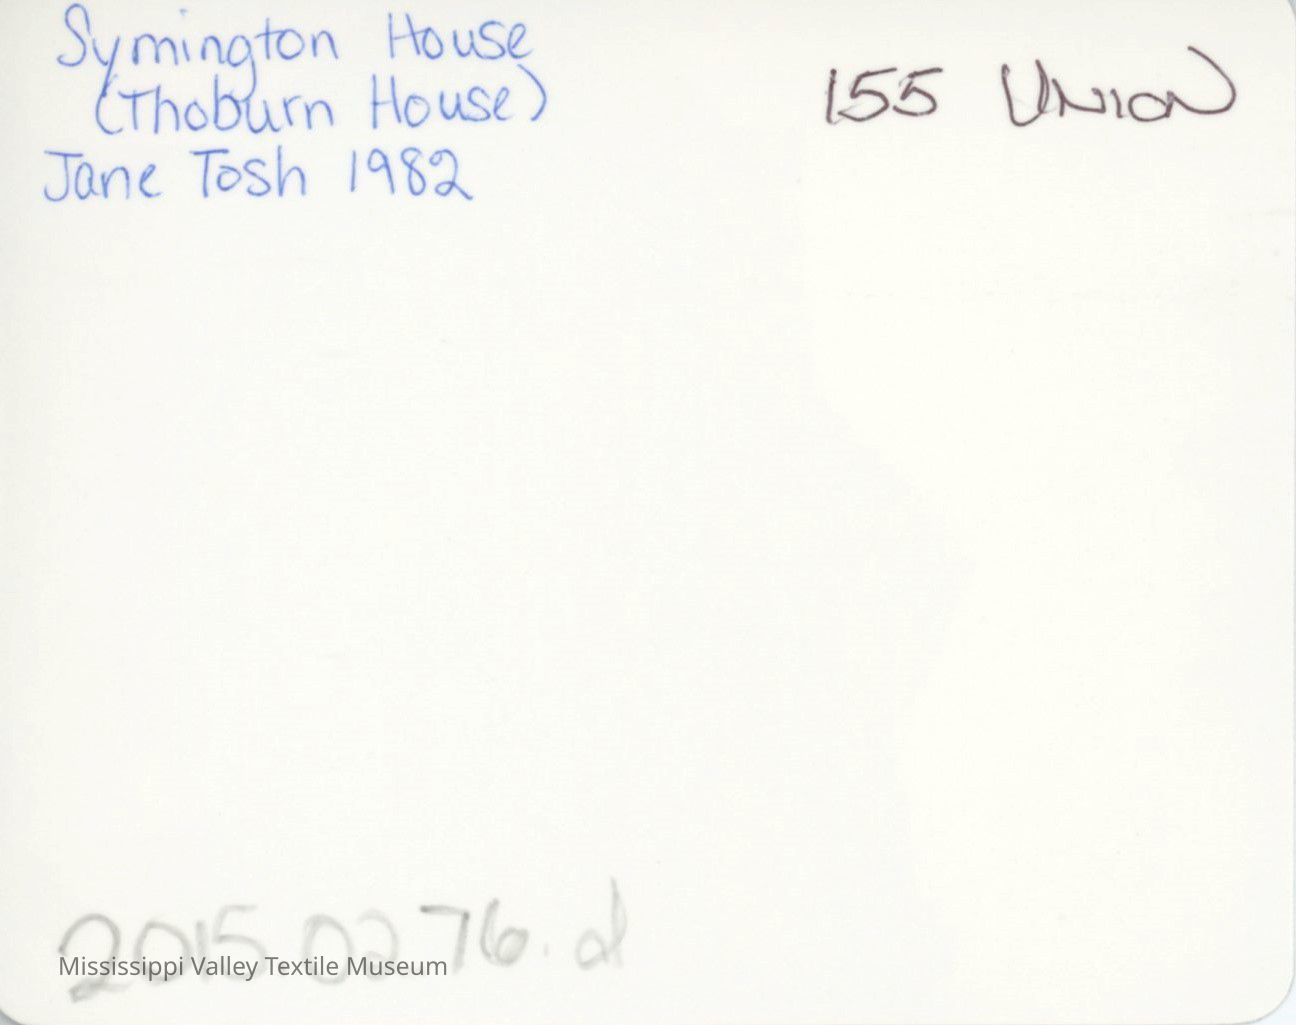 Symington House
(Thoburn House)
Jane Tosh 1982
155 UNION
2015.02.76.d
Mississippi Valley Textile Museum